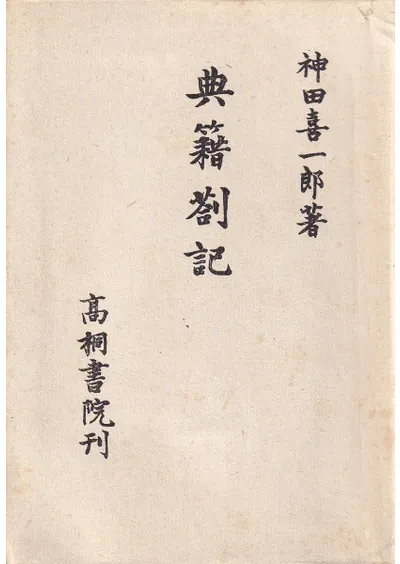 神田喜一郎著
典籍劄記
髙桐書院刊